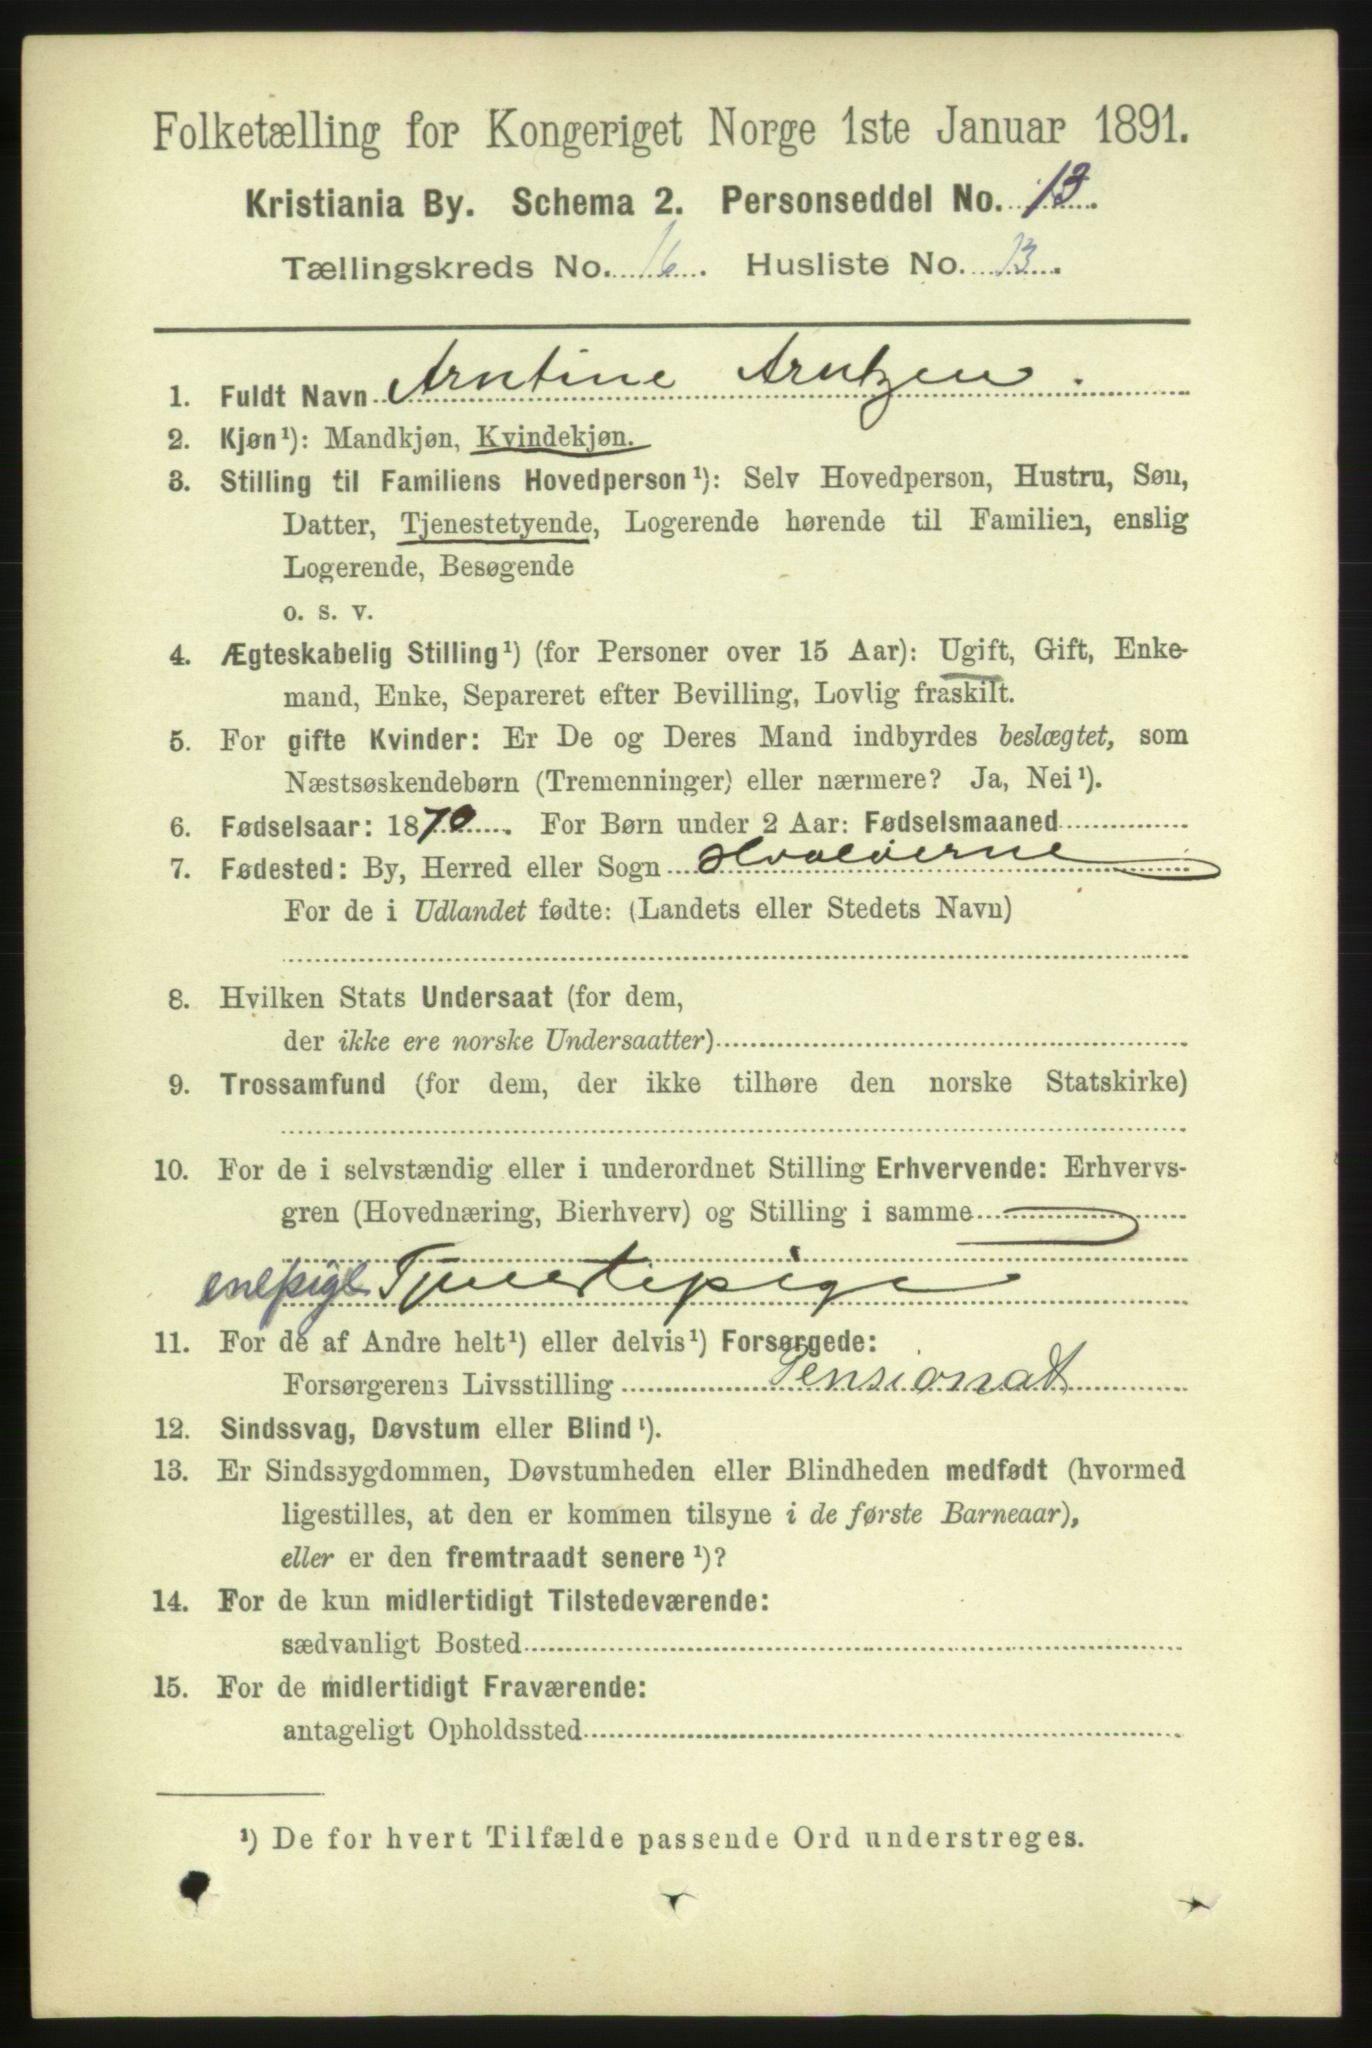 Folketælling for Kongeriget Norge 1ste Januar 1891.
Kristiania By. Schema 2. Personseddel No. 13.
Tællingskreds No. 16. Husliste No. 13.
1. Fuldt Navn Arntine Arntzen.
2. Kjøn¹): Mandkjøn, Kvindekjøn.
3. Stilling til Familiens Hovedperson¹): Selv Hovedperson, Hustru, Søn,
Datter, Tjenestetyende, Logerende hørende til Familien, enslig
Logerende, Besøgende
o. s. v.
4. Ægteskabelig Stilling¹) (for Personer over 15 Aar): Ugift, Gift, Enke-
mand, Enke, Separeret efter Bevilling, Lovlig fraskilt.
5. For gifte Kvinder: Er De og Deres Mand indbyrdes beslægtet, som
Næstsøskendebørn (Tremenninger) eller nærmere? Ja, Nei¹).
6. Fødselsaar: 1870. For Børn under 2 Aar: Fødselsmaaned
7. Fødested: By, Herred eller Sogn Hvaløerne
For de i Udlandet fødte: (Landets eller Stedets Navn)
8. Hvilken Stats Undersaat (for dem,
der ikke ere norske Undersaatter)
9. Trossamfund (for dem, der ikke tilhøre den norske Statskirke)
10. For de i selvstændig eller i underordnet Stilling Erhvervende: Erhvervs-
gren (Hovednæring, Bierhverv) og Stilling i samme
enepige Tjenestepige
11. For de af Andre helt¹) eller delvis¹) Forsørgede:
Forsørgerens Livsstilling Pensionat
12. Sindssvag, Døvstum eller Blind¹).
13. Er Sindssygdommen, Døvstumheden eller Blindheden medfødt (hvormed
ligestilles, at den er kommen tilsyne i de første Barneaar),
eller er den fremtraadt senere¹)?
14. For de kun midlertidigt Tilstedeværende:
sædvanligt Bosted
15. For de midlertidigt Fraværende:
antageligt Opholdssted
¹) De for hvert Tilfælde passende Ord understreges.